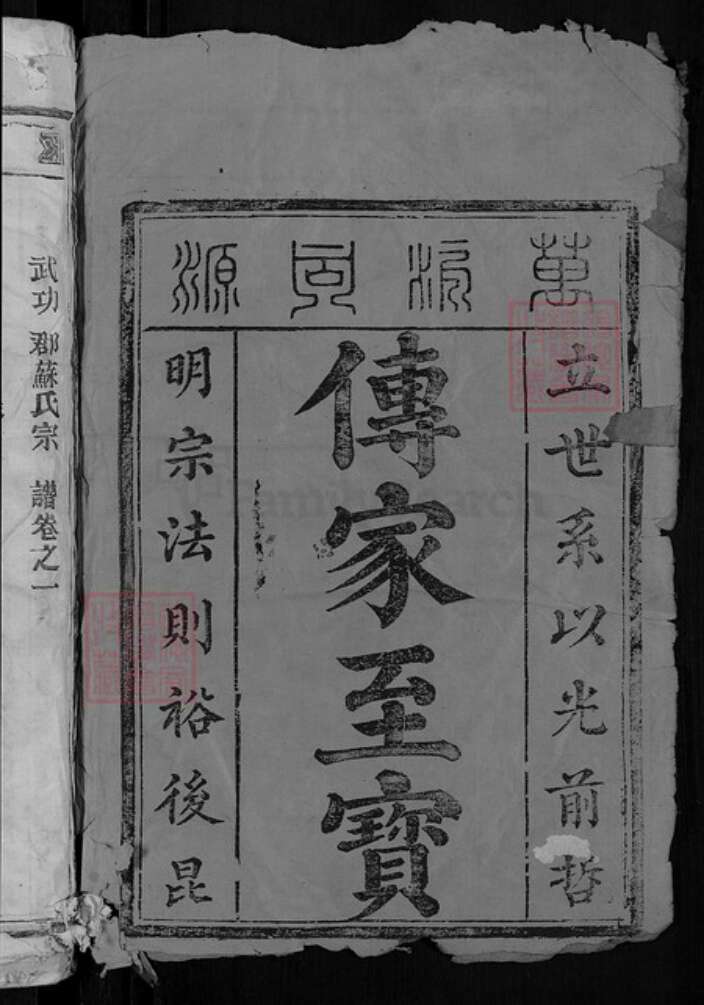 萬派同源
立世系以光前哲
傳家至寶
明宗法則裕後昆
武功郡蘇氏宗譜卷之一
FamilySearch